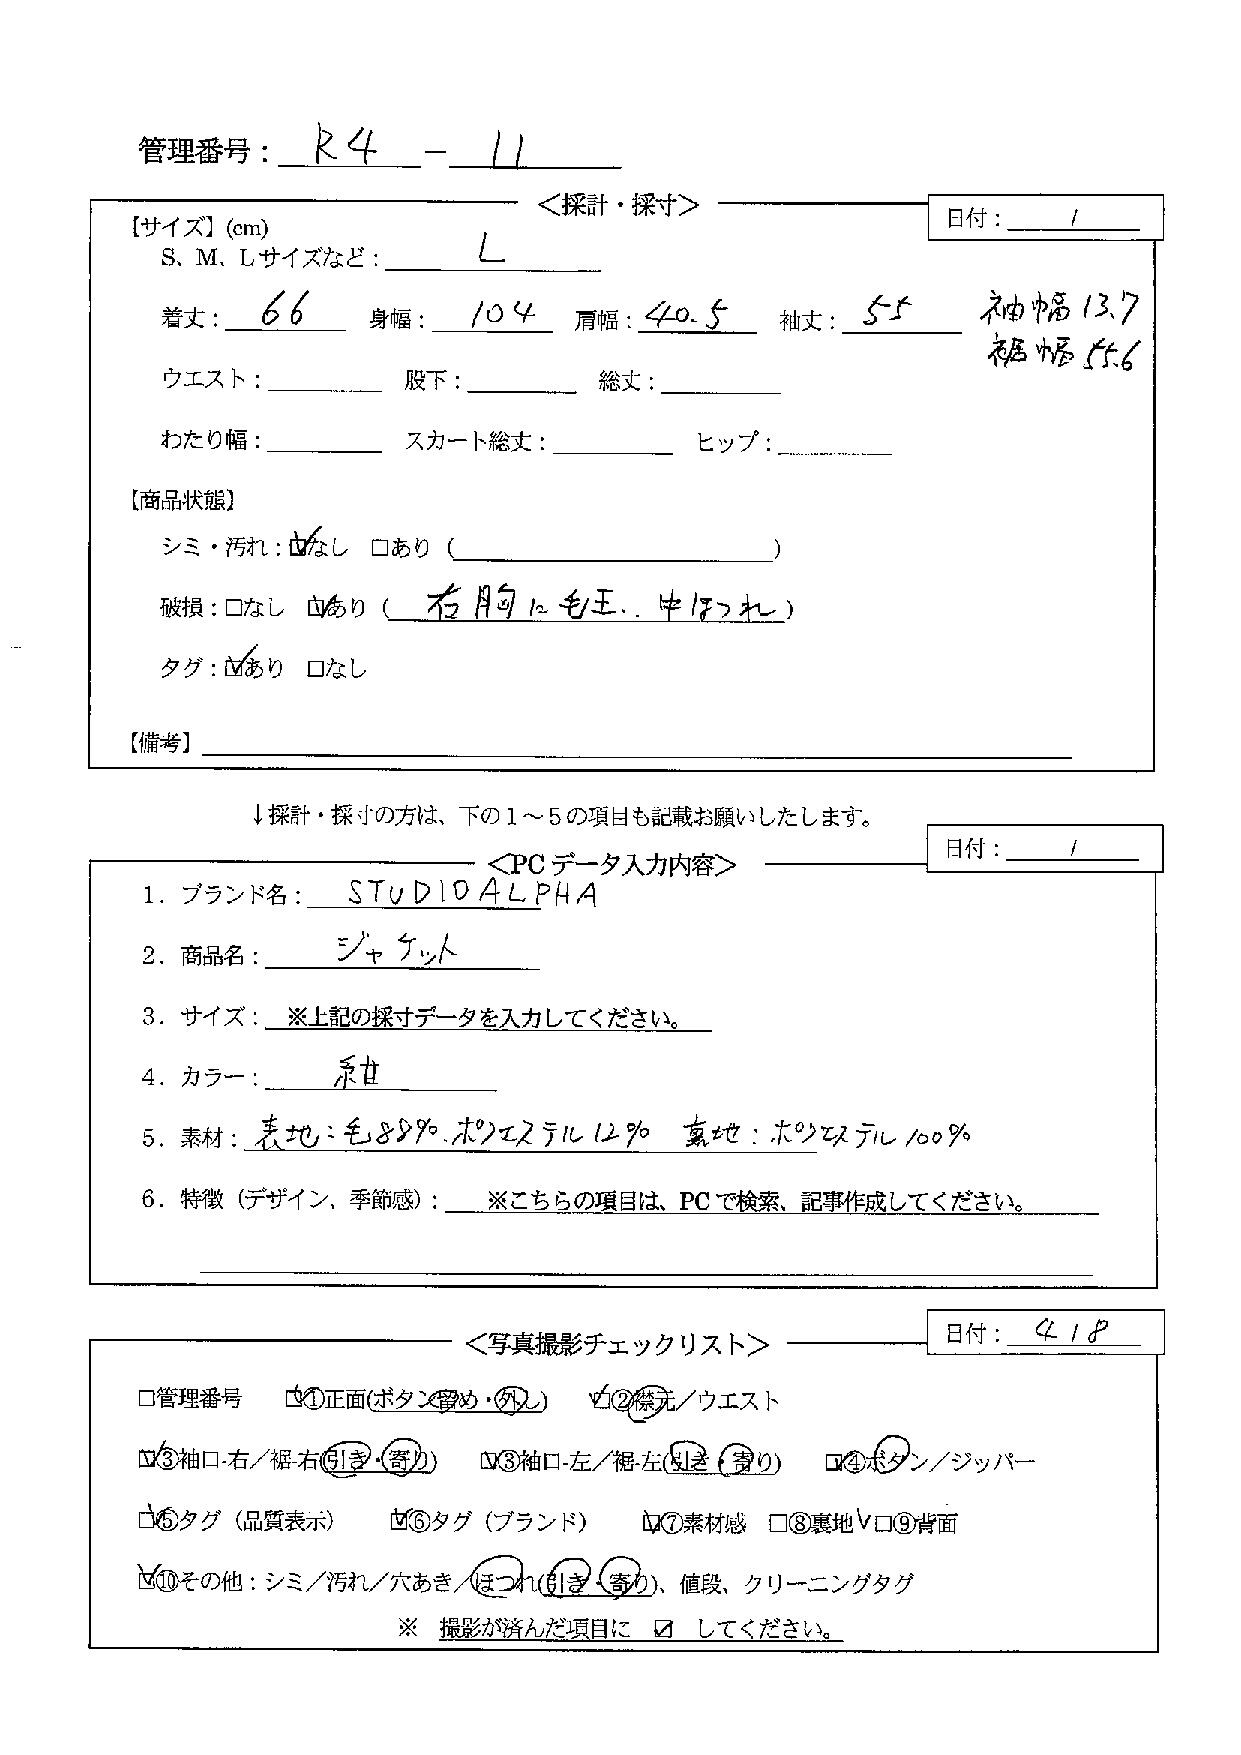 管理番号： R4 － 11
＜採計・採寸＞
日付： /
【サイズ】(cm)
S、M、Lサイズなど： L
着丈： 66 身幅： 104 肩幅： 40.5 袖丈： 55 袖幅 13.7
裾幅 55.6
ウエスト： 股下： 総丈：
わたり幅： スカート総丈： ヒップ：
【商品状態】
シミ・汚れ：☑なし □あり（ ）
破損：□なし ☑あり（ 右胸に毛玉.. ほつれ ）
タグ：☑あり □なし
【備考】
↓採計・採寸の方は、下の1～5の項目も記載お願いしたします。
日付： /
＜PCデータ入力内容＞
1．ブランド名： STUDIO ALPHA
2．商品名： ジャケット
3．サイズ： ※上記の採寸データを入力してください。
4．カラー： 紺
5．素材： 表地：毛88%.ポリエステル12% 裏地：ポリエステル100%
6．特徴（デザイン、季節感）： ※こちらの項目は、PCで検索、記事作成してください。
日付： 4/18
＜写真撮影チェックリスト＞
□管理番号 ☑①正面(ボタン留め・外し) ☑②襟元／ウエスト
☑③袖口-右／裾-右(引き・寄り) ☑③袖口-左／裾-左(引き・寄り) ☑④ボタン／ジッパー
☑⑤タグ（品質表示） ☑⑥タグ（ブランド） ☑⑦素材感 □⑧裏地 ☑⑨背面
☑⑩その他：シミ／汚れ／穴あき／ほつれ(引き・寄り)、値段、クリーニングタグ
※ 撮影が済んだ項目に ☑ してください。